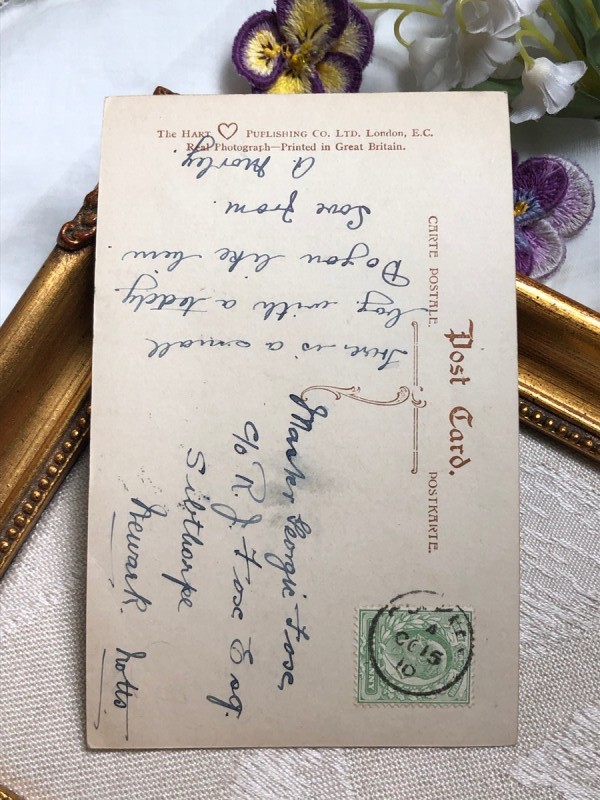 The HART PUBLISHING CO. LTD. London, E.C.
Real Photograph—Printed in Great Britain.
Post Card.
CARTE POSTALE.
POSTKARTE.
here is a small
boy with a teddy
Do you like him
Love from
A Morley
Master Georgie Foxe,
c/o R. J. Foxe Esq.
Sibthorpe
Newark
Notts
A
OC 15
10